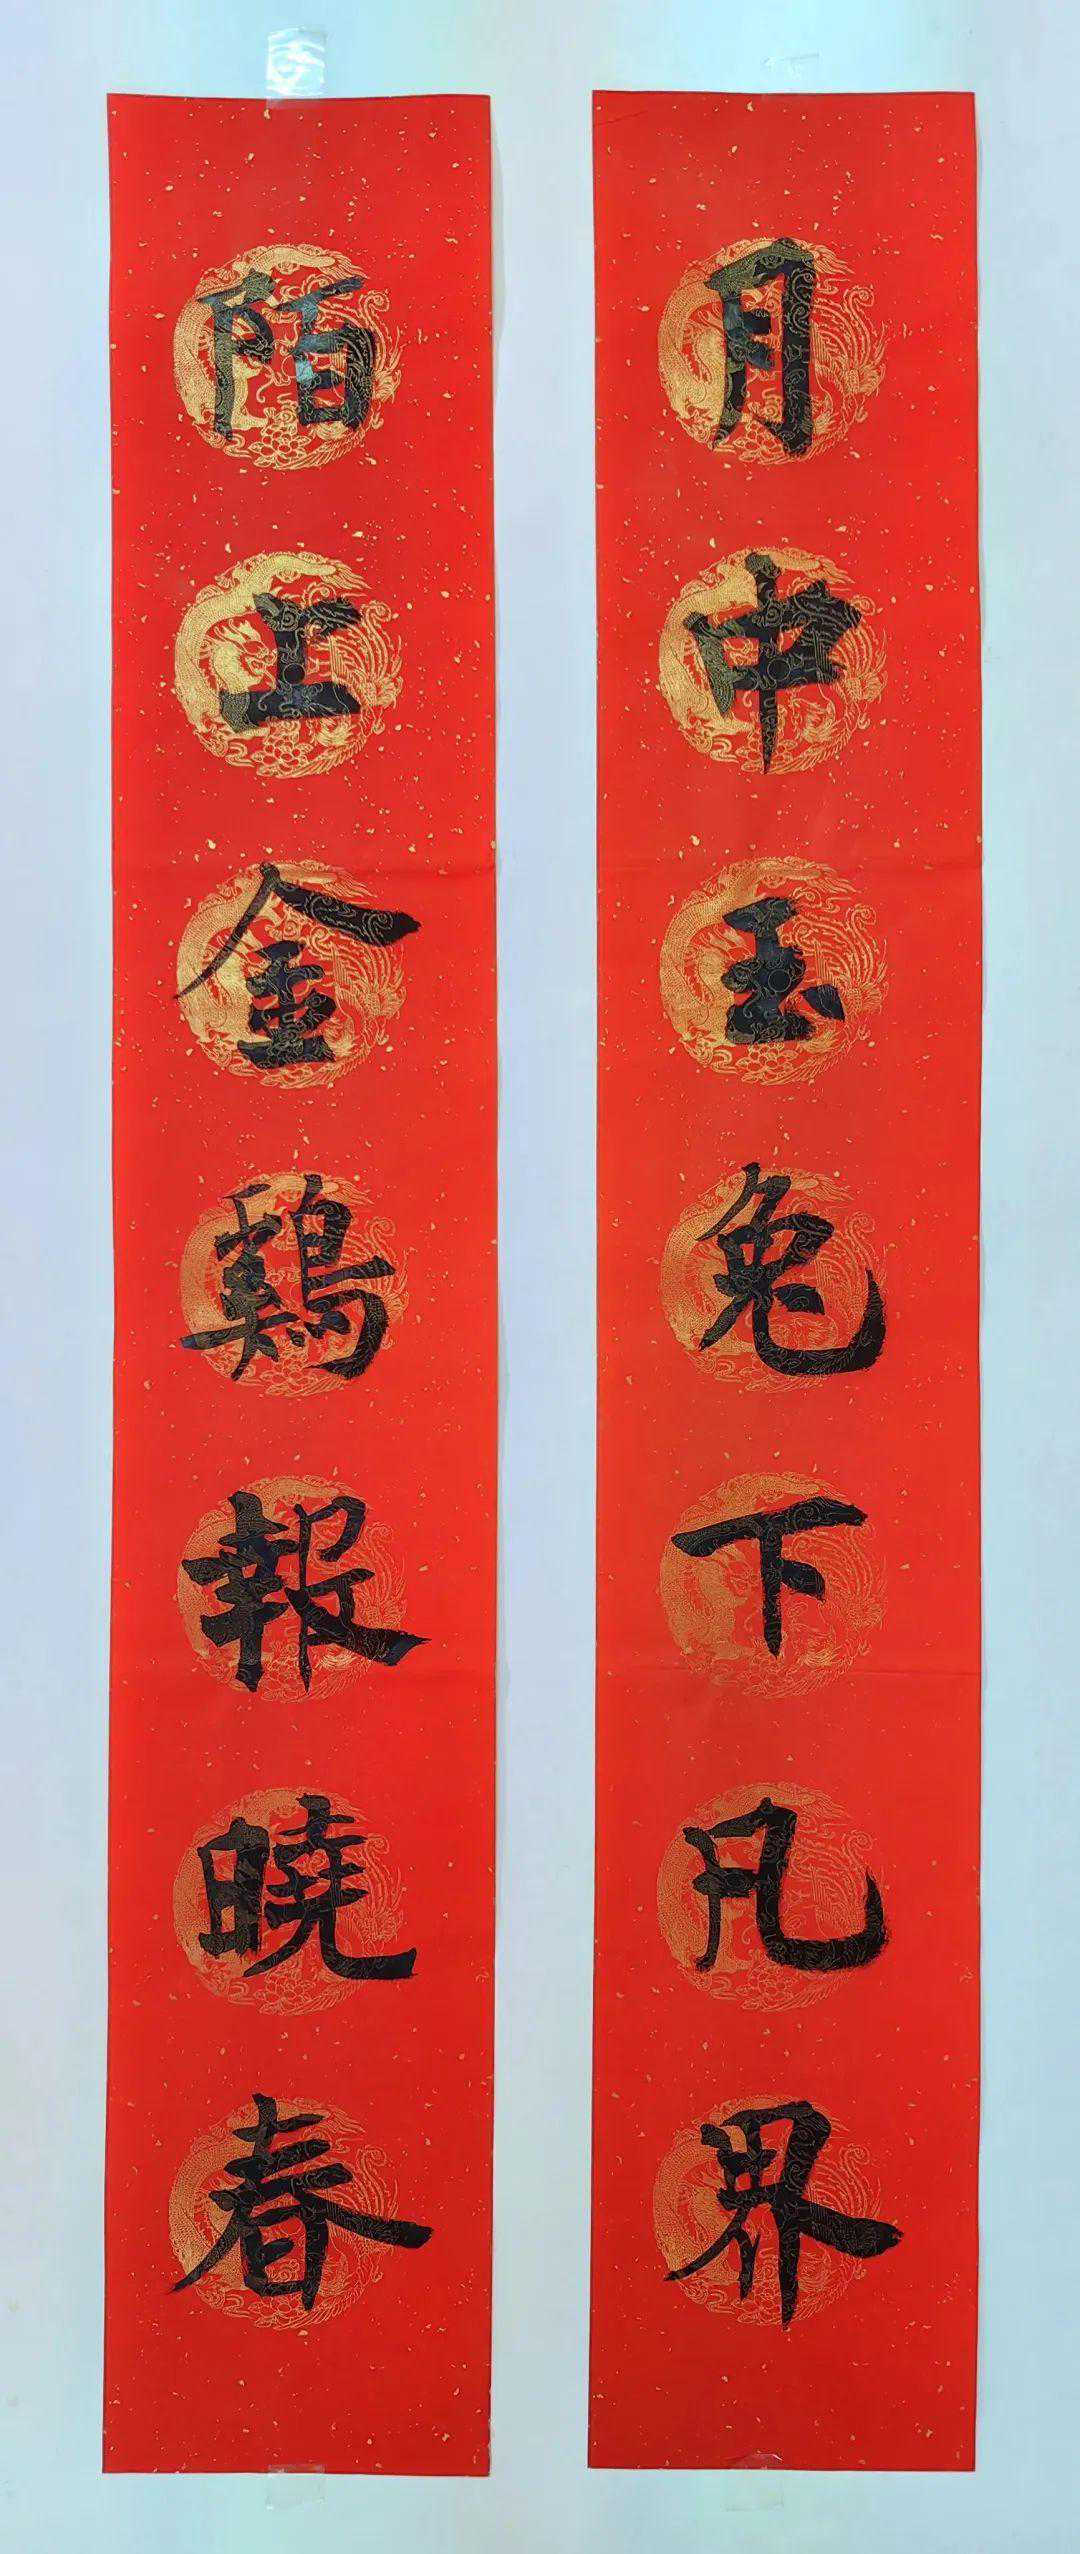 月中玉兔下凡界
陌上金鷄報曉春